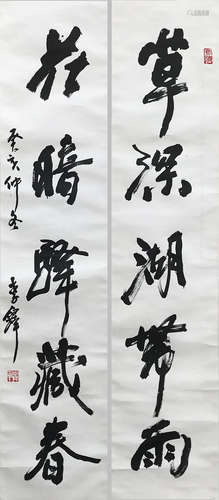 草深湖帶雨
花暗驛藏春
癸亥仲冬
李鐸